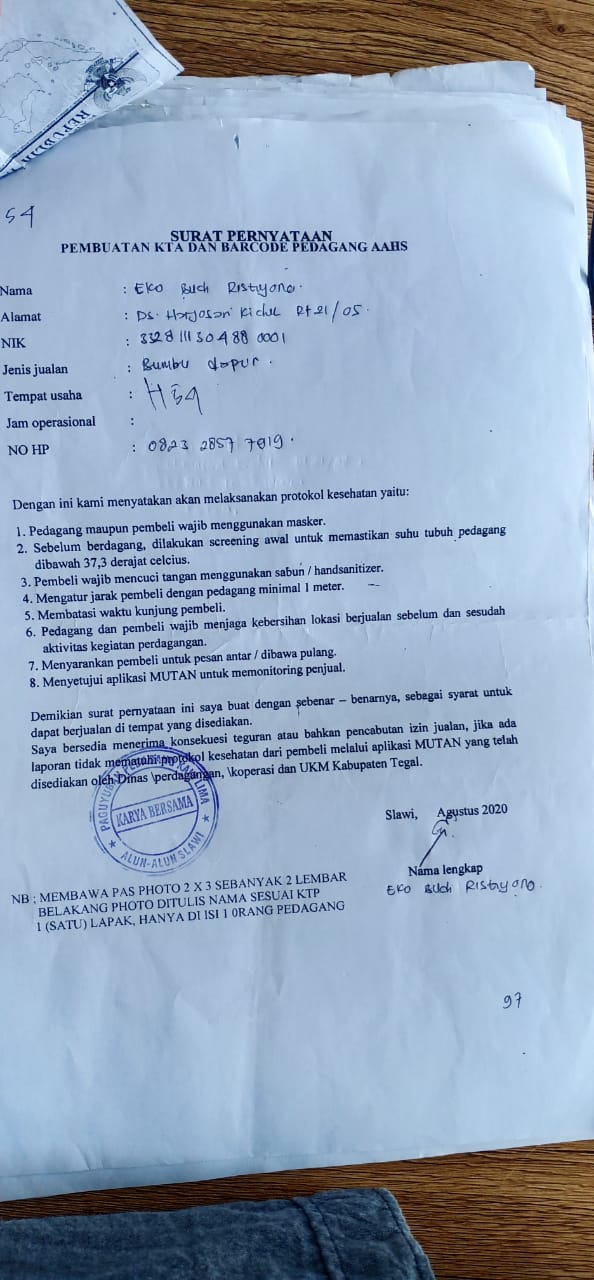 REPUBLIK
54
SURAT PERNYATAAN
PEMBUATAN KTA DAN BARCODE PEDAGANG AAHS
Nama : EKO Budi Ristiyono.
Alamat : Ds. Harjosari Kidul Rt 21/05.
NIK : 3328 111 30488 0001
Jenis jualan : Bumbu dapur.
Tempat usaha :
Jam operasional :
NO HP : 0823 2857 7019.
Dengan ini kami menyatakan akan melaksanakan protokol kesehatan yaitu:
1. Pedagang maupun pembeli wajib menggunakan masker.
2. Sebelum berdagang, dilakukan screening awal untuk memastikan suhu tubuh pedagang
dibawah 37,3 derajat celcius.
3. Pembeli wajib mencuci tangan menggunakan sabun / handsanitizer.
4. Mengatur jarak pembeli dengan pedagang minimal 1 meter.
5. Membatasi waktu kunjung pembeli.
6. Pedagang dan pembeli wajib menjaga kebersihan lokasi berjualan sebelum dan sesudah
aktivitas kegiatan perdagangan.
7. Menyarankan pembeli untuk pesan antar / dibawa pulang.
8. Menyetujui aplikasi MUTAN untuk memonitoring penjual.
Demikian surat pernyataan ini saya buat dengan sebenar – benarnya, sebagai syarat untuk
dapat berjualan di tempat yang disediakan.
Saya bersedia menerima konsekuesi teguran atau bahkan pencabutan izin jualan, jika ada
laporan tidak mematuhi protokol kesehatan dari pembeli melalui aplikasi MUTAN yang telah
disediakan oleh Dinas \perdagangan, \koperasi dan UKM Kabupaten Tegal.
PAGUYUBAN PEDAGANG KAKI LIMA
KARYA BERSAMA
ALUN-ALUN SLAWI
Slawi, Agustus 2020
Nama lengkap
EKO Budi Ristiyono.
NB : MEMBAWA PAS PHOTO 2 X 3 SEBANYAK 2 LEMBAR
BELAKANG PHOTO DITULIS NAMA SESUAI KTP
1 (SATU) LAPAK, HANYA DI ISI 1 0RANG PEDAGANG
97